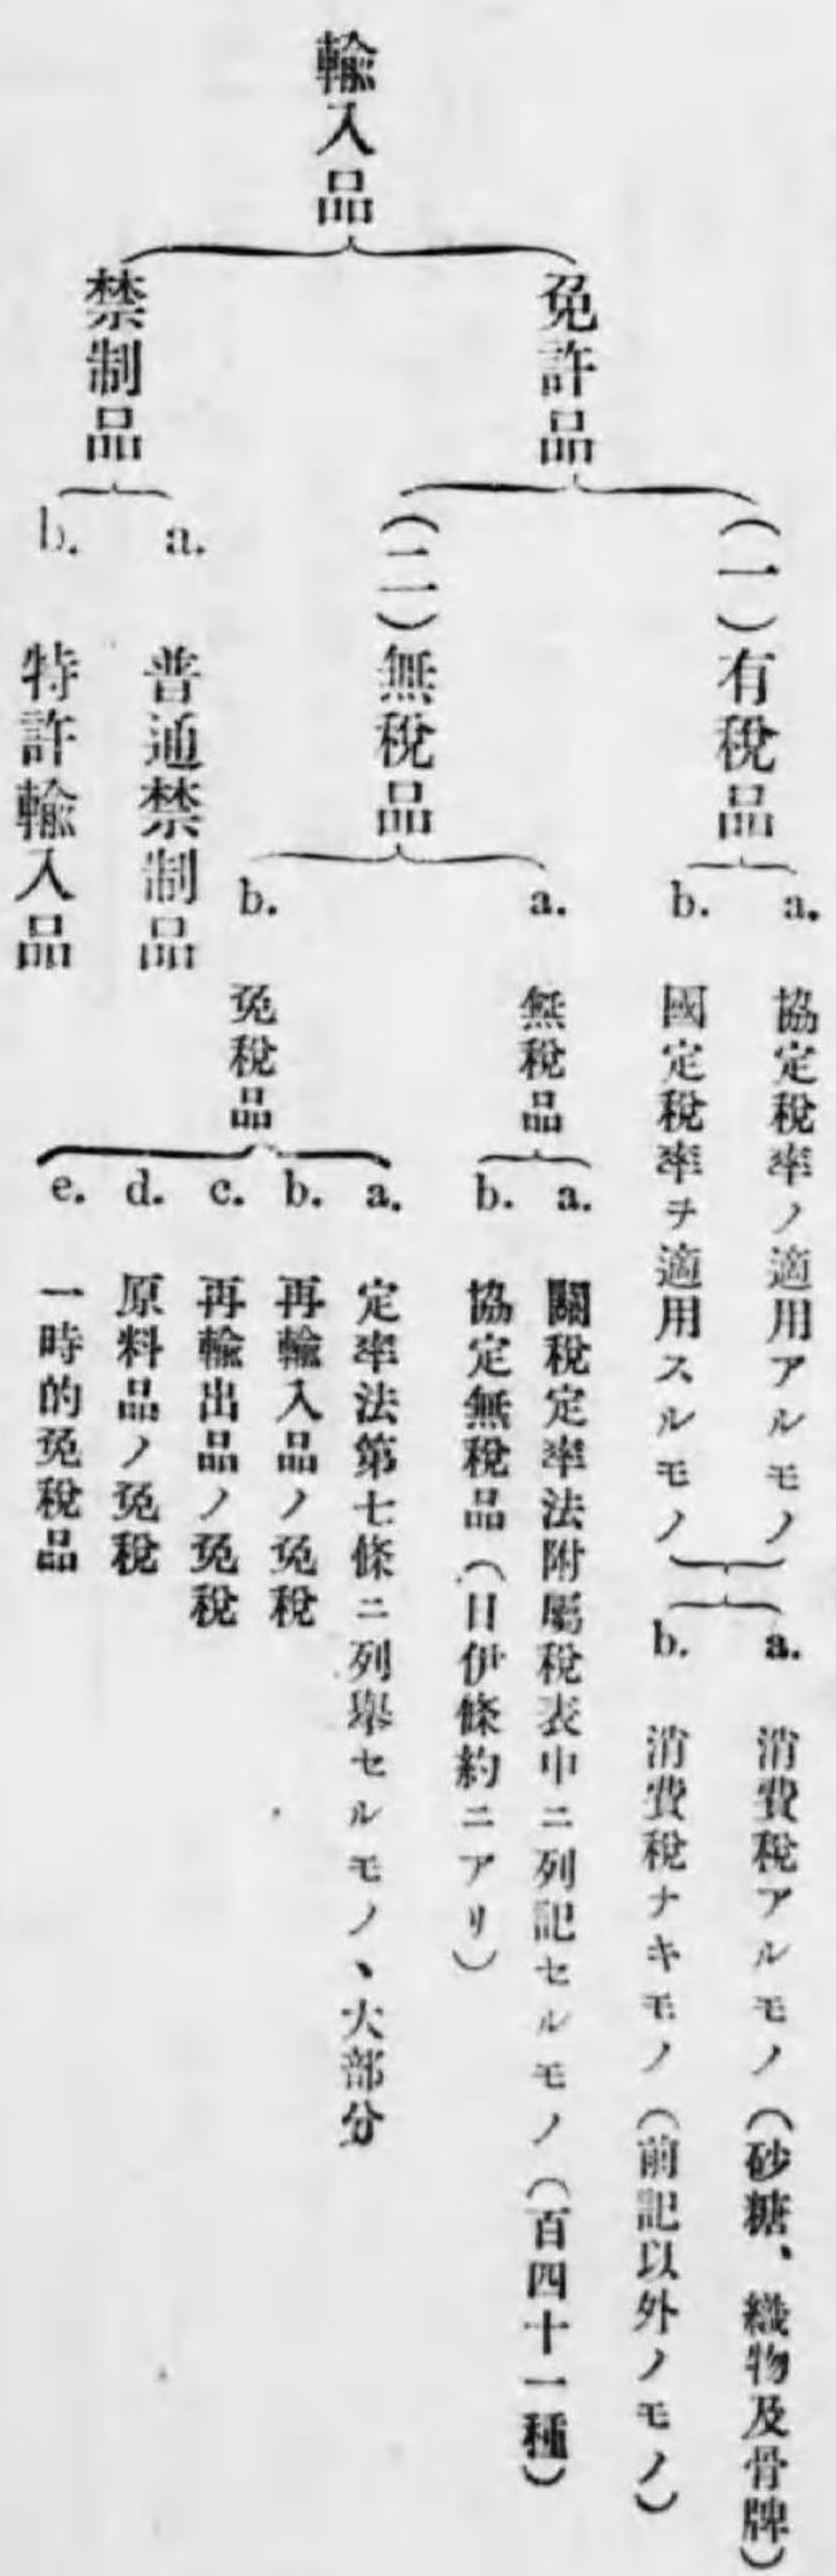 輸入品
免許品
(一)有稅品
a.
協定稅率ノ適用アルモノ
b.
國定稅率ヲ適用スルモノ
a.
消費稅アルモノ(砂糖、織物及骨牌)
b.
消費稅ナキモノ(前記以外ノモノ)
(二)無稅品
a.
無稅品
a.
關稅定率法附屬稅表中ニ列記セルモノ(百四十一種)
b.
協定無稅品(日伊條約ニアリ)
b.
免稅品
a.
定率法第七條ニ列擧セルモノヽ大部分
b.
再輸入品ノ免稅
c.
再輸出品ノ免稅
d.
原料品ノ免稅
e.
一時的免稅品
禁制品
a.
普通禁制品
b.
特許輸入品